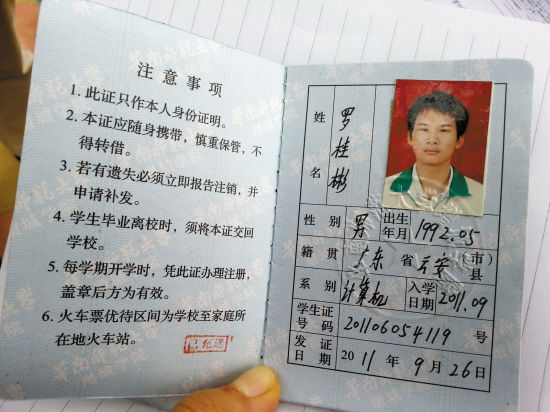 注意事项
1. 此证只作本人身份证明。
2. 本证应随身携带，慎重保管，不
得转借。
3. 若有遗失必须立即报告注销，并
申请补发。
4. 学生毕业离校时，须将本证交回
学校。
5. 每学期开学时，凭此证办理注册，
盖章后方为有效。
6. 火车票优待区间为学校至家庭所
在地火车站。
姓名 罗桂彬
性别 男 出生年月 1992.05
籍贯 广东 省 云安 （市）县
系别 计算机 入学日期 2011.09
学生证号码 201106054119 号
发证日期 2011 年 9 月 26 日